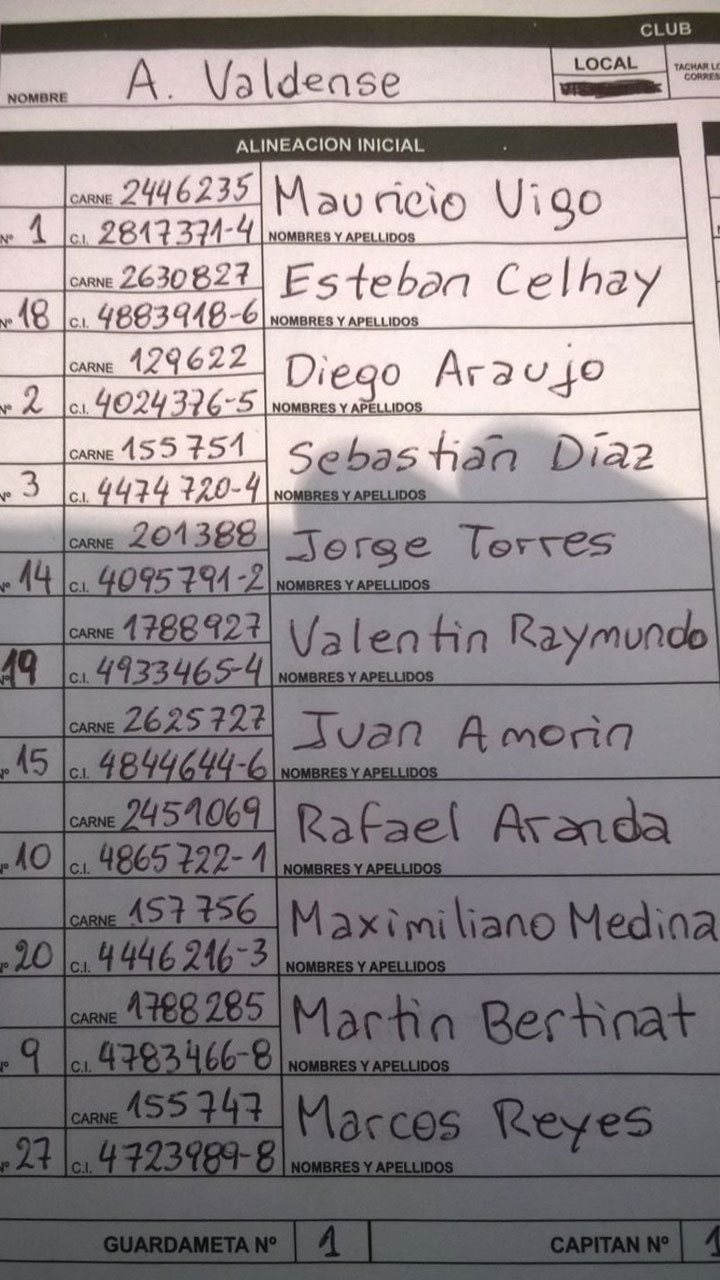 CLUB
NOMBRE A. Valdense LOCAL TACHAR
ALINEACION INICIAL
CARNE 2446235 Mauricio Vigo
Nº 1 C.I. 2817371-4 NOMBRES Y APELLIDOS
CARNE 2630827 Esteban Celhay
Nº 18 C.I. 4883918-6 NOMBRES Y APELLIDOS
CARNE 129622 Diego Araujo
Nº 2 C.I. 4024376-5 NOMBRES Y APELLIDOS
CARNE 155751 Sebastián Díaz
Nº 3 C.I. 4474720-4 NOMBRES Y APELLIDOS
CARNE 201388 Jorge Torres
Nº 14 C.I. 4095791-2 NOMBRES Y APELLIDOS
CARNE 1788927 Valentin Raymundo
Nº 19 C.I. 4933465-4 NOMBRES Y APELLIDOS
CARNE 2625727 Juan Amorin
Nº 15 C.I. 4844644-6 NOMBRES Y APELLIDOS
CARNE 2451069 Rafael Aranda
Nº 10 C.I. 4865722-1 NOMBRES Y APELLIDOS
CARNE 157756 Maximiliano Medina
Nº 20 C.I. 4446216-3 NOMBRES Y APELLIDOS
CARNE 1788285 Martin Bertinat
Nº 9 C.I. 4783466-8 NOMBRES Y APELLIDOS
CARNE 155747 Marcos Reyes
Nº 27 C.I. 4723989-8 NOMBRES Y APELLIDOS
GUARDAMETA Nº 1 CAPITAN Nº